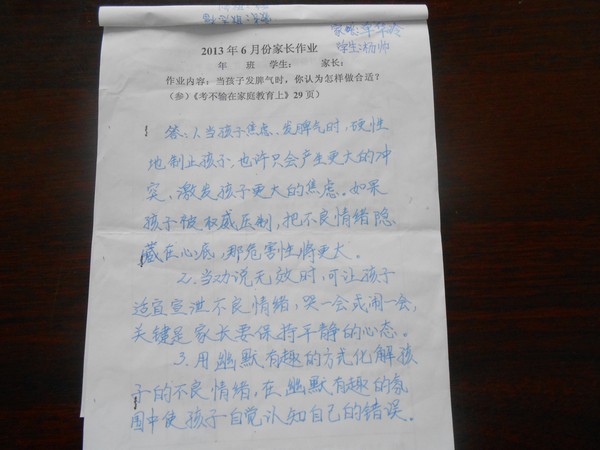 家长:
学生:杨帅
2013 年 6 月份家长作业
年 班 学生: 家长:
作业内容:当孩子发脾气时,你认为怎样做合适?
(参)《考不输在家庭教育上》29 页)
答:1、当孩子焦虑、发脾气时,硬性
地制止孩子、也许只会产生更大的冲
突、激发孩子更大的焦虑。如果
孩子被权威压制,把不良情绪隐
藏在心底,那危害性将更大。
2、当劝说无效时,可让孩子
适宜宣泄不良情绪,哭一会或闹一会,
关键是家长要保持平静的心态。
3、用幽默有趣的方式化解孩
子的不良情绪,在幽默有趣的氛
围中使孩子自觉认知自己的错误。